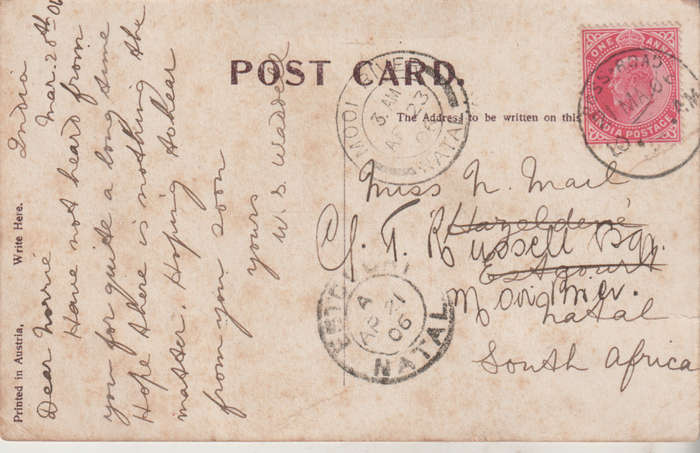 POST CARD.
The Address to be written on this
Printed in Austria. Write Here.
India
Mar. 20th 06
Dear Norrie
Have not heard from
you for quite a long time
Hope there is nothing the
matter. Hoping to hear
from you soon
yours
W. S.
Miss N. Mail
Hazeldene
C/o. T. Russell Esq.
Estcourt
Mooi River.
Natal
South Africa
MOOI RIVER
3. AM
AP 23
06
NATAL
ESTCOURT
A
AP 21
06
NATAL
ONE ANNA
INDIA POSTAGE
ROAD